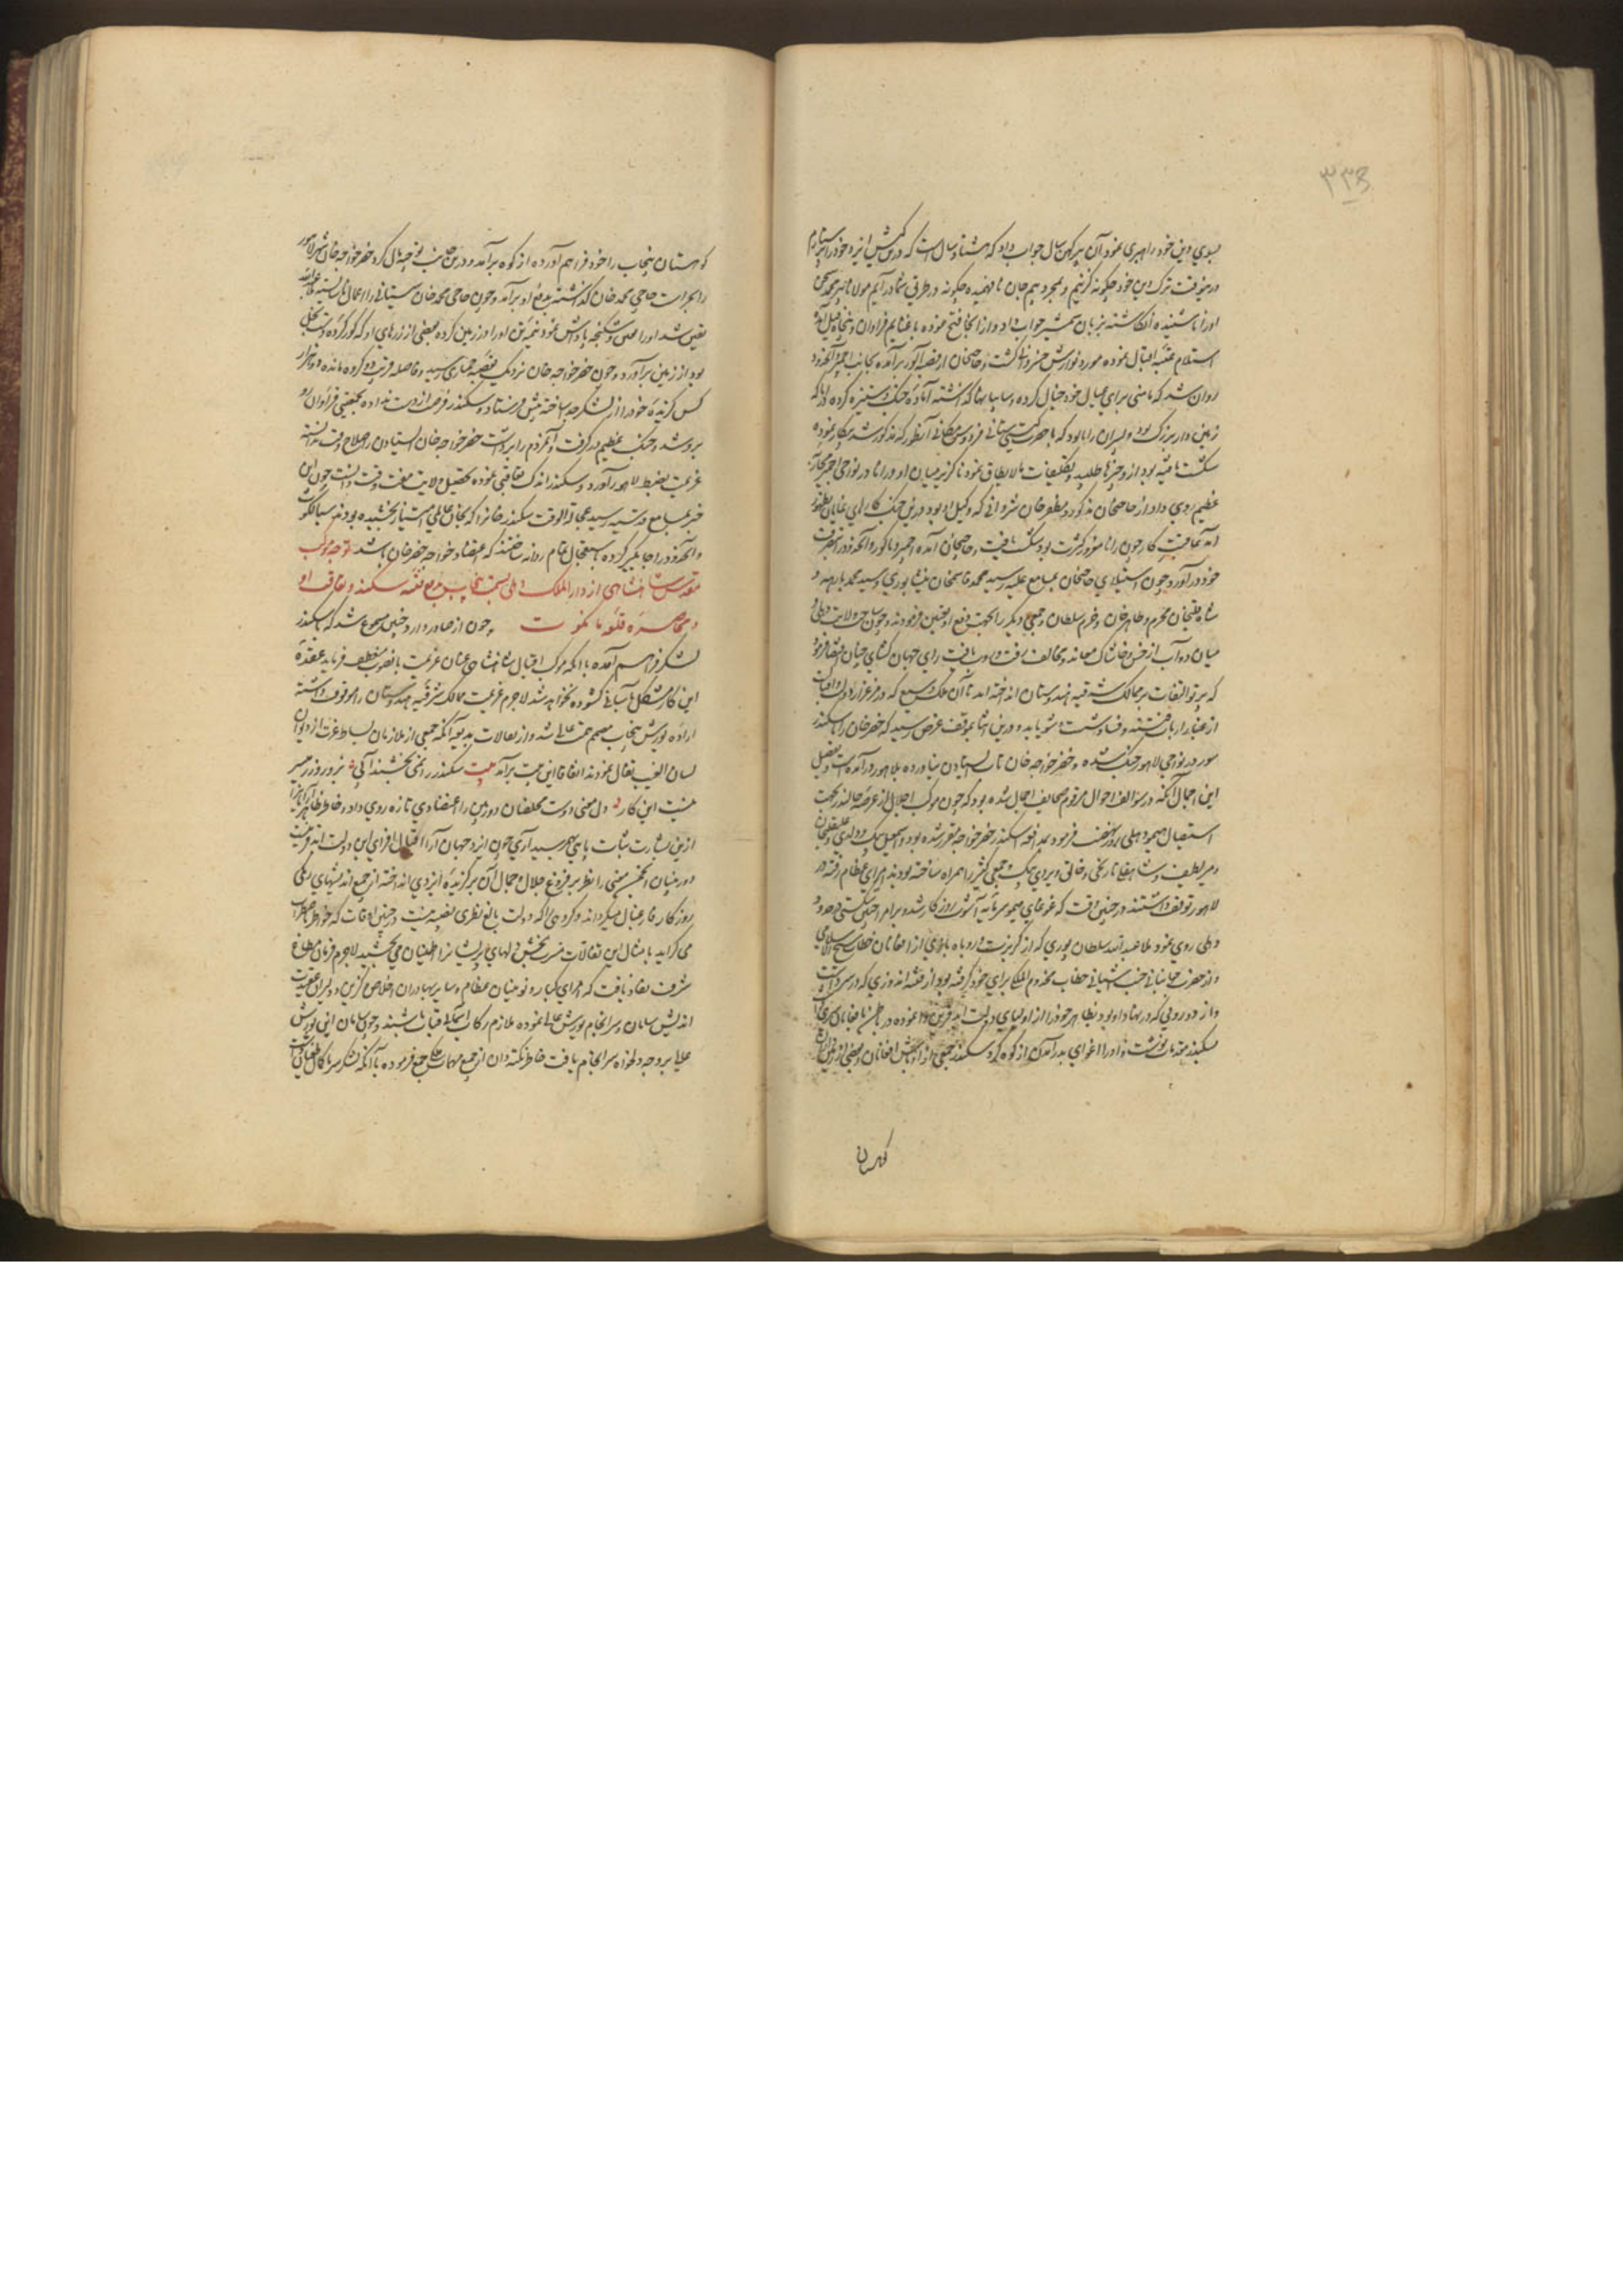 ۳۳۵
بسوی دین خود راهبری نمود آن پیر کهن سال جواب داد که هشتاد سال است که درین کیش ایزد خود را پرستارم
درینوقت ترک این خود چگونه گزینم و بمجرد بیم جان نافهمیده چگونه در طریق شما درآیم مولانا پیر محمد سخن
اورا ناشنیده انگاشته بزبان شمشیر جواب داد و از آنجا فتح نموده با غنایم فراوان و پنجاه فیل آمده
استلام عتبه اقبال نموده مورد نوازش خسروانه گشت و حاجیخان از قصبه الور برآمده بجانب اجمیر و آنحدود
روان شد که مامنی برای عیال خود خیال کرده و سپاهیها که داشته آماده جنگ و ستیزه کرده رانا که
زمین دار بزرگ بود و پسر آن رانا بود که با حضرت گیتی ستانی فردوس مکانی آنطور که مذکور شد پیکار نموده
شکست یافته بود ازو چیزها طلبیده تکلیفات مالایطاق نمود ناگزیر میان او و رانا در نواحی اجمیر محاربه
عظیم روی داد از حاجیخان مذکور و مظفر خان شروانی که وکیل او بود درین جنگ کارهای نمایان بظهور
آمد عاقبت کار چون رانا مغرور کثرت بود شکست یافت و حاجیخان آمده اجمیر و ناگور و آنحدود در تصرف
خود درآورد و چون استیلای حاجیخان بمسامع علیه رسید محمد قاسمخان نیشاپوری و سید محمود بارهه و
شاه قلیخان محرم و طاهر خان و خرم سلطان و جمعی دیگر را بجهت دفع او تعیین فرمودند و چون ساحت ولایت دهلی و
میان دوآب از خس و خاشاک معاند و مخالف رفت و روب یافت رای جهان گشای چنان اقتضا فرمود
که پرتو التفات بر ممالک شرقیه هندوستان انداخته آید تا آن ملک وسیع که
از غبار ارباب فتنه و فساد شست شو یابد و درین اثنا بموقف عرض رسید که خضر خان را با سکندر
سور در نواحی لاهور جنگ شده و خضر خواجه خان تاب ایستادن نیاورده بلاهور درآمده است و تفصیل
این اجمال آنکه در سوالف احوال مرقوم صحایف اجمال شده بود که چون موکب اجلال از عرصه جالندر بجهت
استیصال هیمو دهلی رویه نهضت فرمود بمدافعه سکندر خضر خواجه مقرر شده بود و اسمعیل بیک دولدی و علیقلیخان
و میر لطیف و شاهقلی نارنجی و خالق ویردی بیک و جمعی کثیر را همراه ساخته بودند امرای عظام رفته در
لاهور توقف داشتند در چنین وقت که غوغای هیمو سرمایه آشوب روزگار شده بر امرا چنین شکستی در حدود
دهلی روی نمود ملا عبدالله سلطان پوری که از گربزت و روباه بازی از افغانان خطاب شیخ الاسلامی
و از حضرت جهانبانی جنت آشیانی خطاب مخدوم الملکی برای خود گرفته بود از فتنه اندوزی که در سر داشت
و از دورویی که در نهاد او بود بظاهر خود را از اولیای دولت ابد قرین وا نموده در باطن با افغانان
سکندر مقدمات نوشت و او را اغوای بدرآمدن از کوه کرد و سکندر جمعی از اوباش افغانان و بعضی از زمینداران
کوهستان
کوهستان پنجاب را با خود فراهم آورده از کوه برآمد و درین حین بتوجه مال کرد خضر خواجه خان شهر لاهور
را بحراست حاجی محمد خان گذاشته بدفع او برآمد و چون حاجی محمد خان سیستانی را اعمال ناشایسته ملا عبدالله
یقین شد اورا حبس و شکنجه پاداش نمود و نیمه تن اورا در زمین کرده بعضی از زرهای او که گور کرده دست بخل
بود از زمین برآورد و چون خضر خواجه خان نزدیک بقصبه چمیاری رسید و فاصله قریب ده کروه مانده دو هزار
کس گزیده خود را از لشکر جدا ساخته پیش فرستاد و سکندر فرصت از دست نداده بجمعیتی فراوان رو
برو شد و جنگ عظیم درگرفت و آنمردم را برداشت خضر خواجه خان ایستادن را صلاح وقت ندانسته
عزیمت بضبط لاهور آورد و سکندر اندک تعاقبی نموده تحصیل ولایت مغت وقت دانست چون این
خبر بمسامع قدسیه رسید عجالةالوقت سکندر خانرا که بخان عالمی امتیاز بخشیده بودند سیالکوت
و آنحدود را جایگیر کرده باستعجال تمام روانه ساختند که اعتضاد خواجه خضر خان باشد توجه موکب
مقدس شاهنشاهی از دارالملک دهلی بسمت پنجاب بدفع فتنه سکندر و تعاقب او
و محاصره قلعه مانکوت چون از صادر و وارد چنین مسموع شد که باسکندر
لشکر فراهم آمده با آنکه موکب اقبال شاهنشاهی عنان عزیمت بآنصوب منعطف فرماید عقده
این کار مشکل بآسانی گشوده نخواهد شد لاجرم عزیمت ممالک شرقیه هندوستان را موقوف داشته
اراده یورش پنجاب مصمم همت عالی شد و از تفالات بدیعه آنکه جمعی از ملازمان بساط عزت از دیوان
لسان الغیب تفال نمودند اتفاقا این بیت برآمد بیت سکندر را نمی بخشند آبی بزور و زر میسر
نیست این کار دل معنی دوست مخلصان دوربین را اعتضادی تازه روی داد و خاطر ظاهرآرایان را
ازین بشارت ثبات پای بهم رسید آری چون ایزد جهان آرا اقبال افزای این دولت ابد قرینست
دوربینان انجمن معنی را نظر بر فروغ جلال و جمال آن برگزیده ایزدی انداخته از جمیع اندیشهای دیگر
روزگار فارغبال میگرداند و گروهی را که دولت بالغ نظری نصیبه نیست در چنین اوقات که خواطر باضطراب
می گراید بامثال این تفالات مسرت بخش دلهای پریشانرا اطمینان می بخشید لاجرم فرمان مطاع
شرف نفاذ یافت که امرای کبار و نوئینان عظام و سایر بهادران اخلاص گزین و دلیران عقیدت
اندیش سامان و سرانجام یورش عالی نموده ملازم رکاب آسمانی قباب باشند و چون سامان این یورش
عالی بر وجه دلخواه سرانجام یافت خاطر نکته دان از جمیع مهمات ملکی جمع فرموده با آنکه لشکر سرما کمال طغیان داشت